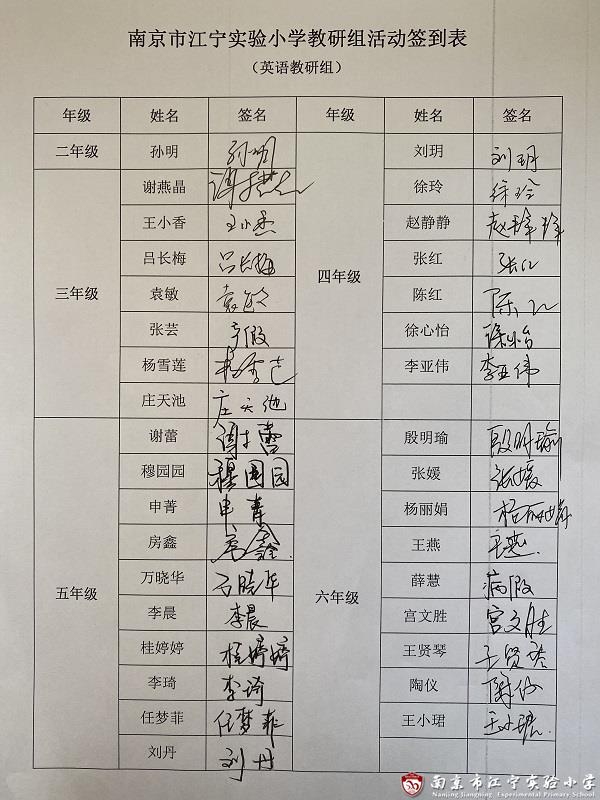 南京市江宁实验小学教研组活动签到表
（英语教研组）
年级 姓名 签名 年级 姓名 签名
二年级 孙明 孙明
三年级 谢燕晶
王小香 王小香
吕长梅 吕长梅
袁敏 袁敏
张芸 产假
杨雪莲 杨雪莲
庄天池 庄天池
四年级 刘玥 刘玥
徐玲 徐玲
赵静静 赵静静
张红 张红
陈红 陈红
徐心怡 徐心怡
李亚伟 李亚伟
五年级 谢蕾 谢蕾
穆园园 穆园园
申菁 申菁
房鑫 房鑫
万晓华 万晓华
李晨 李晨
桂婷婷 桂婷婷
李琦 李琦
任梦菲 任梦菲
刘丹 刘丹
六年级 殷明瑜 殷明瑜
张媛 张媛
杨丽娟 杨丽娟
王燕 王燕
薛慧 病假
宫文胜 宫文胜
王贤琴 王贤琴
陶仪 陶仪
王小珺 王小珺
南京市江宁实验小学
Nanjing Jiangning Experimental Primary School